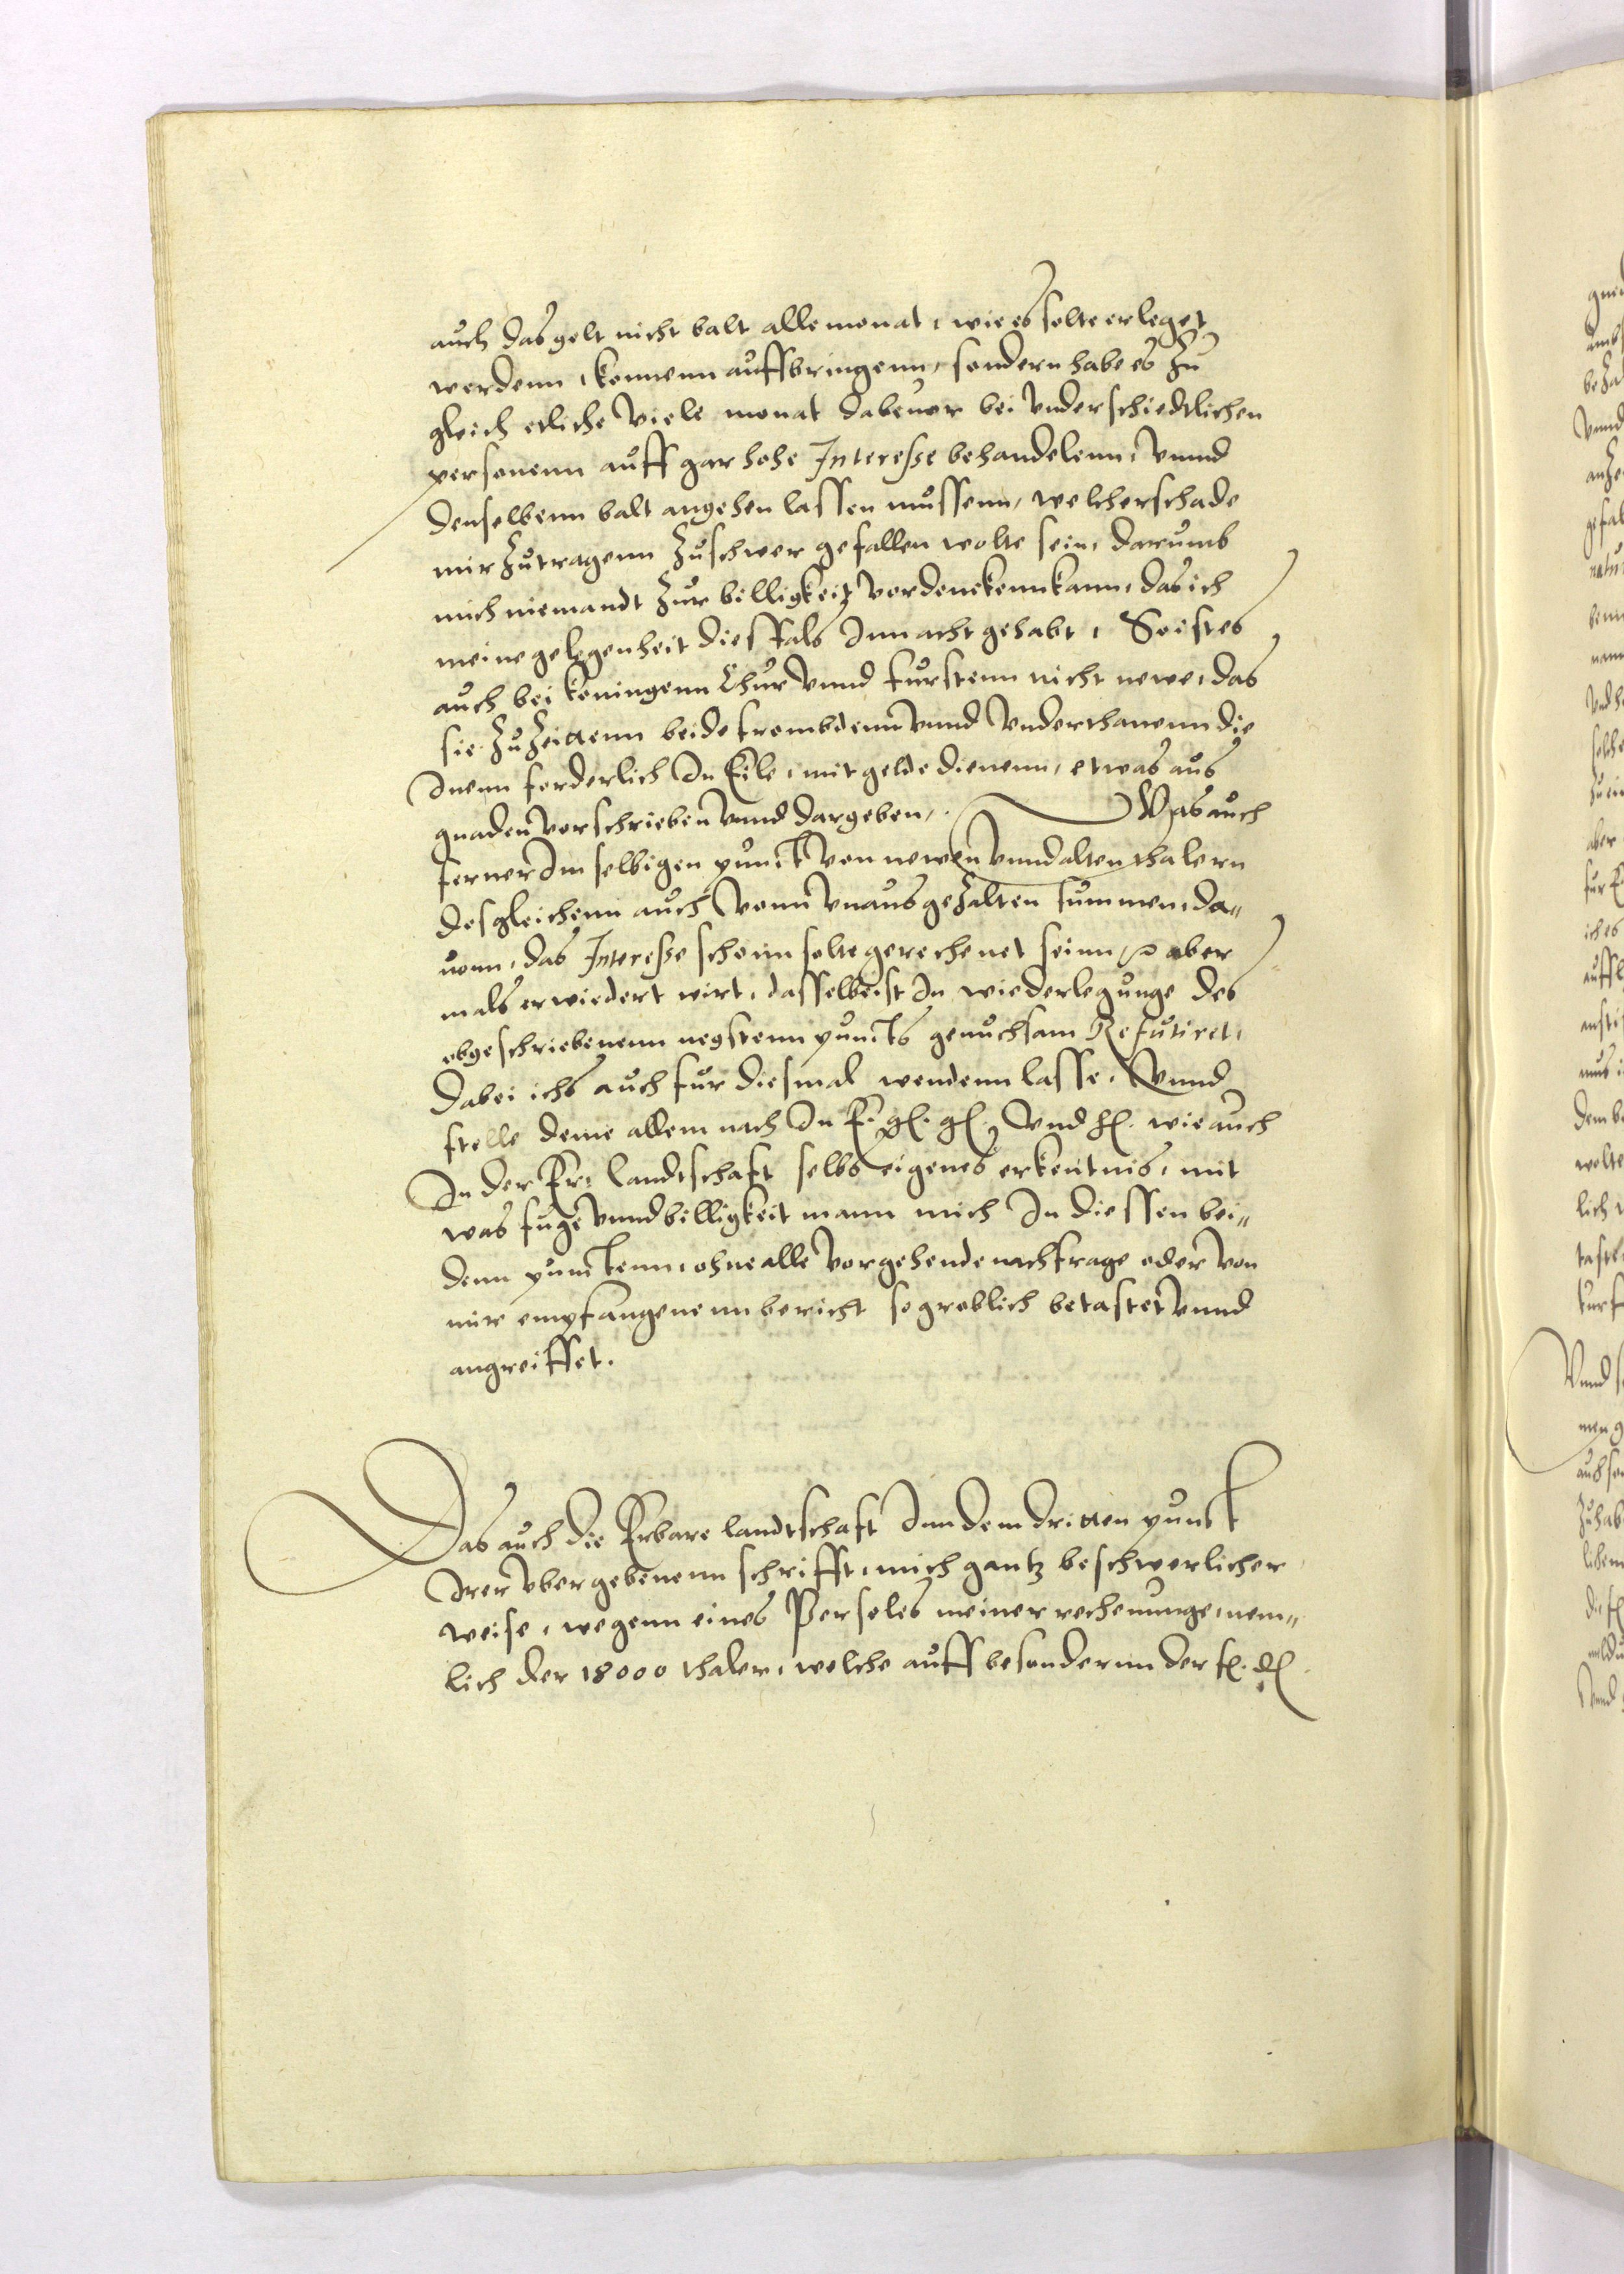 auch das gelt nicht balt alle monat, wie es solte erleget
werdenn, konnenn auffbringenn, sondern habe es zu
gleich etliche viele monat dabeuor bei vnderschiedtlichen
personenn auff gar hohe Interesse behandelenn, vnnd
denselbenn balt angehen lassen mussenn, welcher schade
mir zutragenn zuschwer gefallen wolte sein, darumb
mich niemandt zur billigkeit verdenckenn kann, das ich
meine gelegenheit diesfals Inn acht gehabt, So ist es
auch bei koningenn Chur vnnd furstenn nicht newe, das
sie zuzeittenn beide frembdenn vnnd vnderthanenn die
Inenn forderlich In Eile, mit gelde dienenn, etwas aus
gnaden verschrieben vnnd dargeben, Was auch
ferner Im selbigen punct von newen vnnd alten thalern
desgleichenn auch vonn vnausgezalten summen, da„
uonn, das Interesse schonn solte gerechenet seinn, aber
mals erwiedert wirt, dasselbe ist In wiederlegunge des
obgeschriebenenn negstenn puncts genuchsam Refutiret,
Dabei ichs auch fur diesmal wendenn lasse, Vnnd
stelle deme allem nach In E. g. g. vnd f. wie auch
In der Er: landtschaft selbs eigenes erkentnis, mit
was fuge vnnd billigkeit mann mich In diessen bei„
denn punctenn, ohne alle vorgehende nachfrage oder von
mir empfangenenn bericht so groblich betastet vnnd
angreiffet.
Das auch die Erbare landtschaft Inn dem dritten punct
Irer vbergebenenn schrifft, mich gantz beschwerlicher
weise, wegenn eines Perseles meiner rechenunge, nem„
lich der 18000 thaler, welche auff besondernn der f. d.